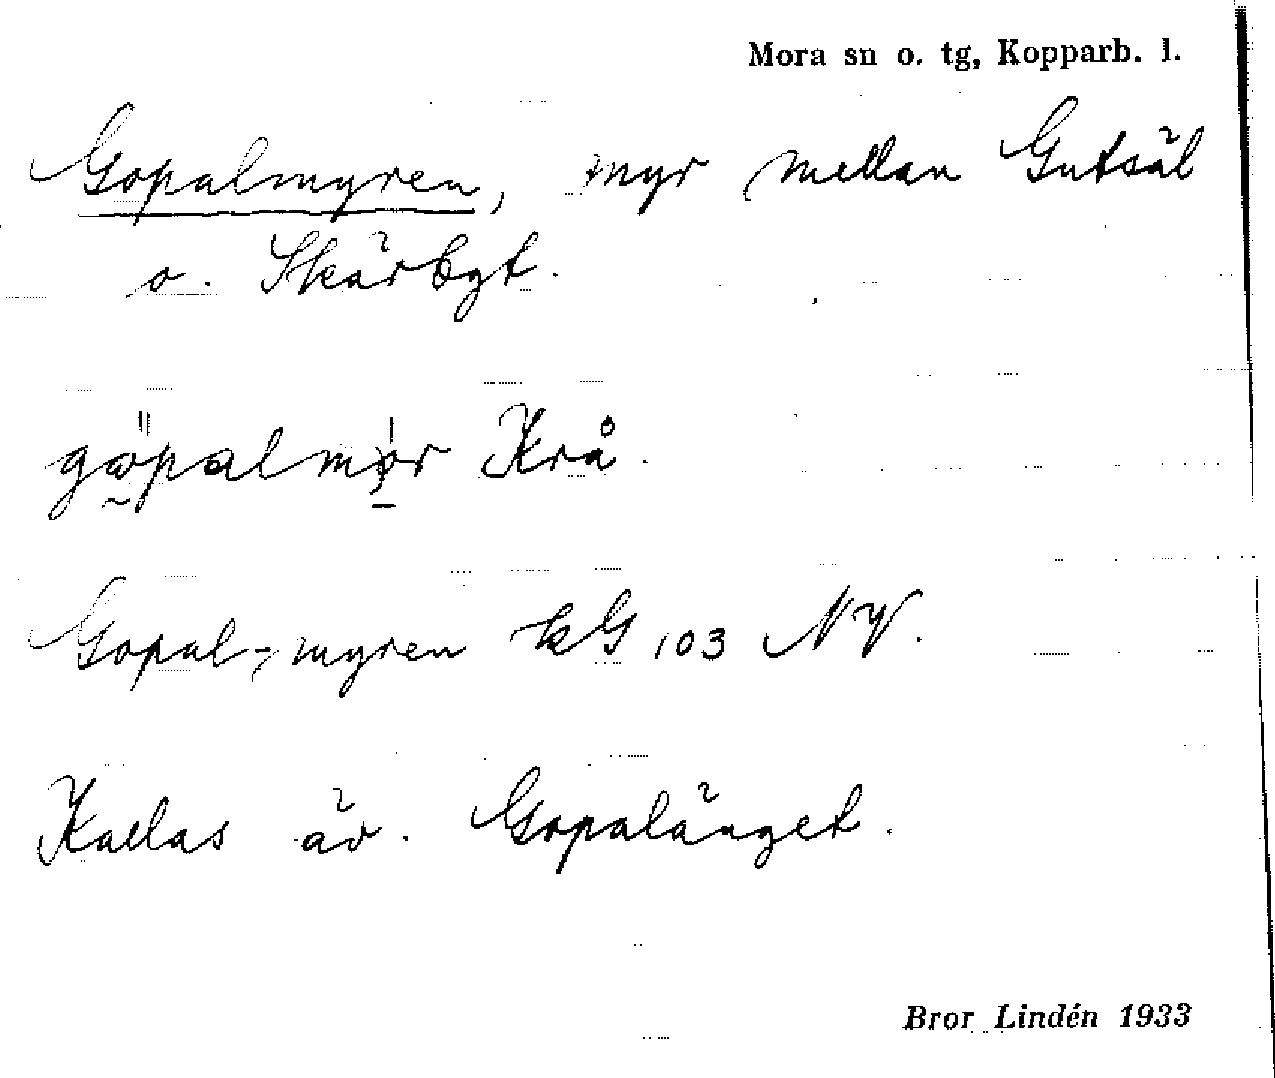 Mora sn o. tg, Kopparb. l.
Gopalmyren, myr mellan Gutsäl
o. Skärbyt.
gopalmør Krå.
Gopal-myren kG 103 NV.
Kallas äv. Gopalänget.
Bror Lindén 1933